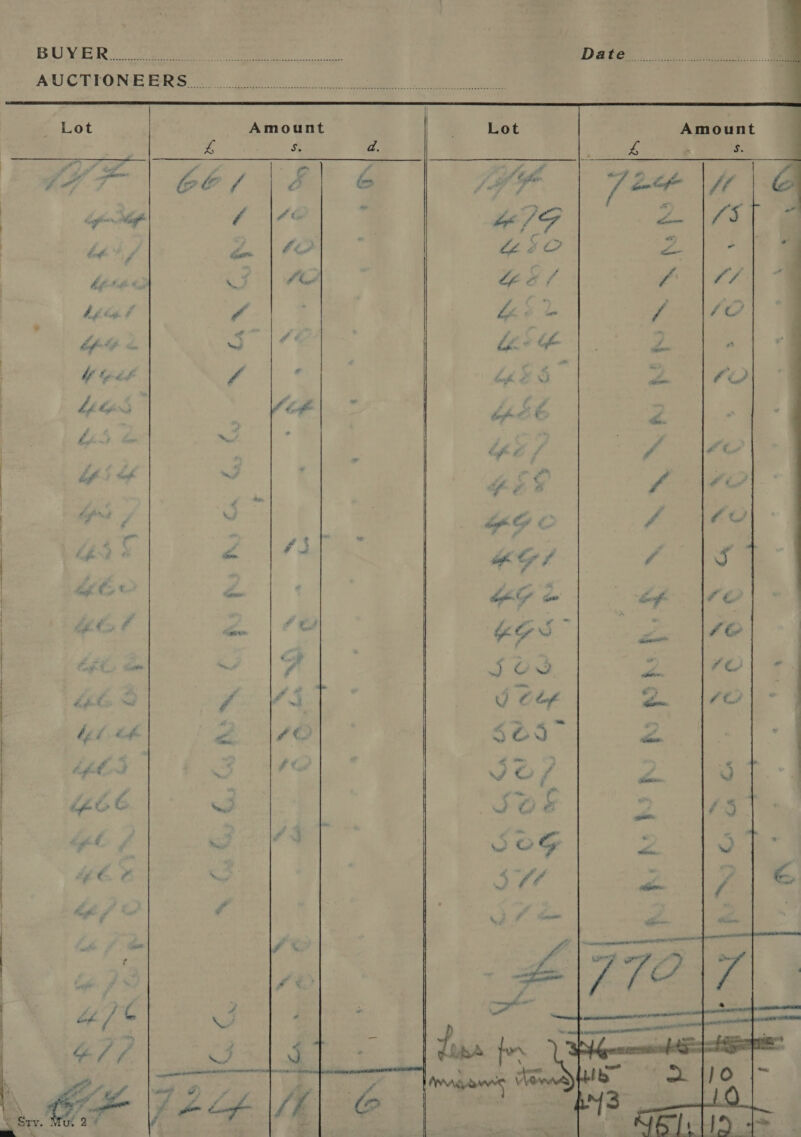 BUYER
Date
AUCTIONEERS
Lot Amount Lot Amount
£ s. d. £ s.
661 8 6
724 11 6
1 10 -
479 2 15 -
2 10
480 2 - -
3 10
481 1 11 -
441 1 -
482 1 10 -
442 5 10
484 2 - -
444 1 - -
485 2 10
445 14 -
486 2 - -
452 3 -
487 1 10
454 3 -
488 1 10
457 5 -
490 1 10
458 2 15 -
491 1 5 -
460 2 -
492 4 10
461 2 10
495 2 10
462 9 -
503 2 10 -
463 1 15 -
504 2 10 -
464 2 10
505 2 -
465 3 10 -
507 2 5 -
466 3
508 2 15 -
467 3 15 -
509 2 5 -
468 3
511 2 7 6
470 1
512 2 2 -
472 10
473 10
£ 770 7
476 3 - -
477 3 5 -
Less for missing items
415 2 10 -
C/F 724 11 6
443 10
£ 12 -
Sty. Mu. 2